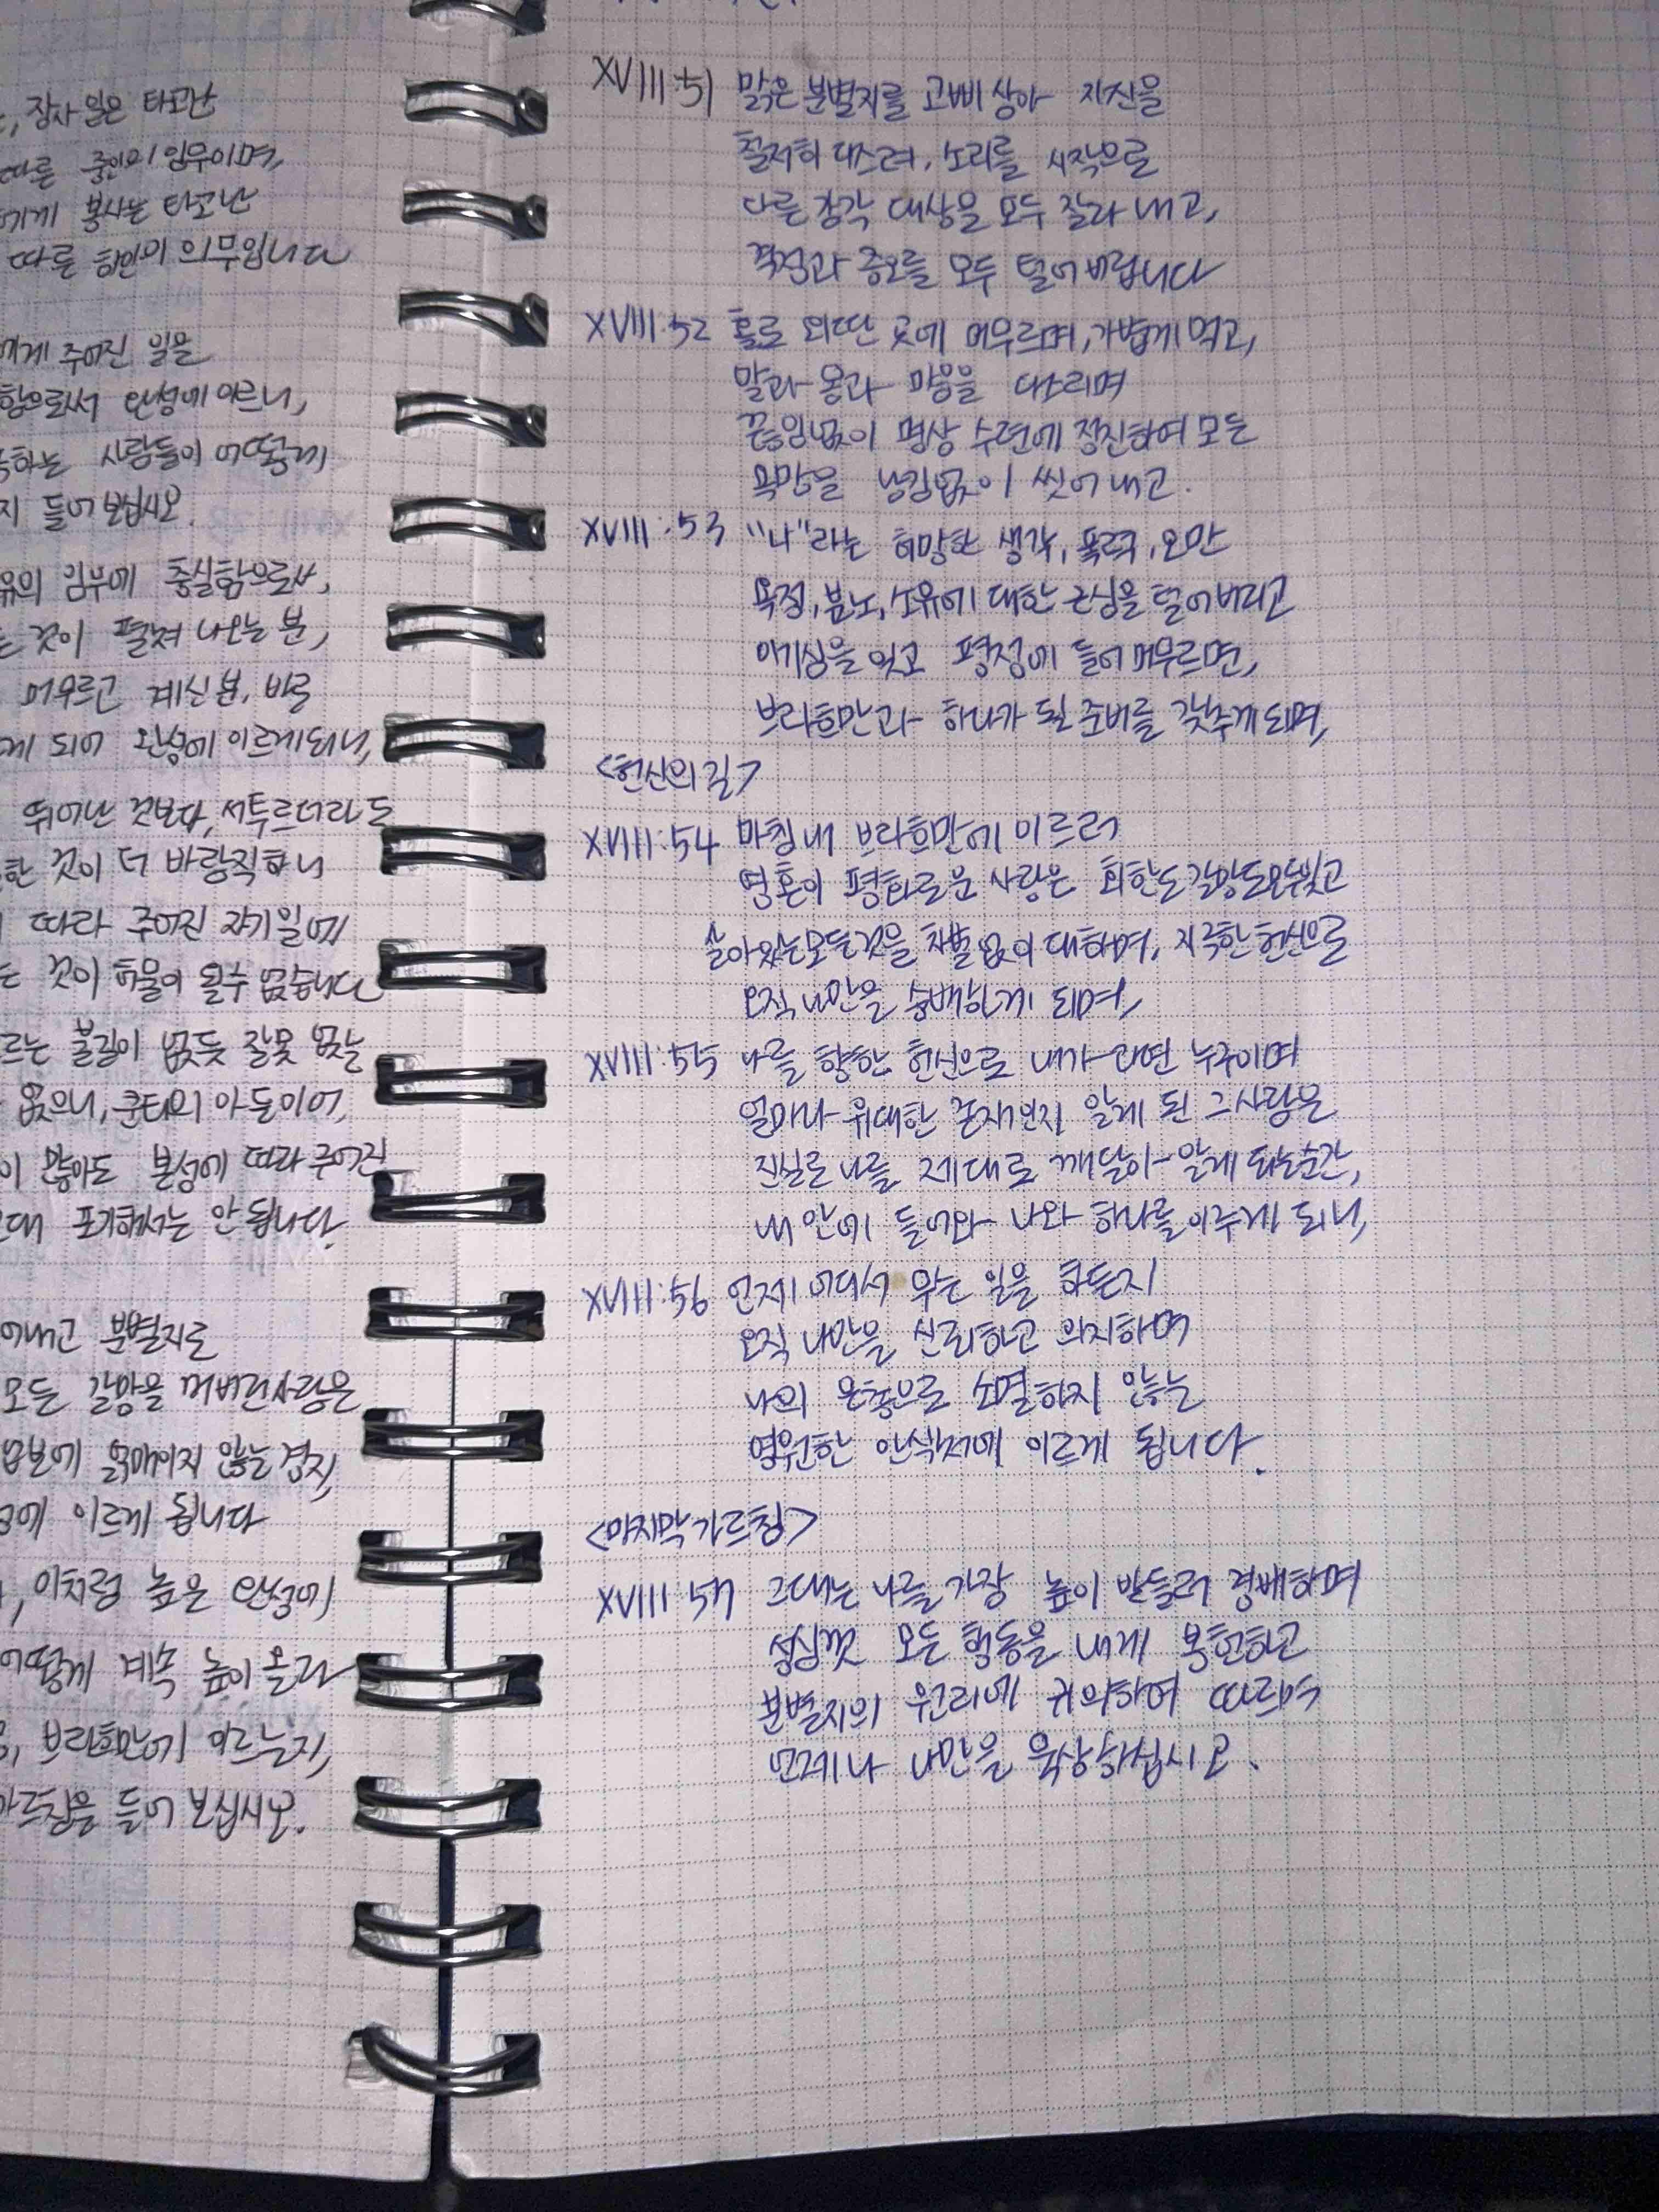 , 장사 일은 타고난
따른 중인의 임무이며,
에게 봉사는 타고난
따른 하인의 의무입니다
에게 주어진 일을
함으로써 완성에 이르니,
하는 사람들이 어떻게
지 들어 보십시오.
유의 임무에 충실함으로써,
것이 펼쳐 나오는 분,
머무르고 계신 분, 바로
게 되어 완성에 이르게되니,
뛰어난 것보다, 서투르더라도
한 것이 더 바람직하니
따라 주어진 자기일에
것이 허물이 될수 없습니다
르는 불길이 없듯 잘못 없는
없으니, 쿤티의 아들이여,
이 많아도 본성에 따라 주어진
대 포기해서는 안 됩니다.
어내고 분별지로
모든 갈망을 꺼버린사람은
업보에 얽매이지 않는 경지,
에 이르게 됩니다
, 이처럼 높은 완성에
어떻게 계속 높이 올라
, 브라흐만에 이르는지,
가르침을 들어 보십시오.
XVIII:51 맑은 분별지를 고삐 삼아 자신을
철저히 다스려, 소리를 시작으로
다른 감각 대상을 모두 잘라 내고,
걱정과 증오를 모두 털어 버립니다
XVIII:52 홀로 외딴 곳에 머무르며, 가볍게 먹고,
말과 몸과 마음을 다스리며
끊임없이 명상 수련에 정진하여 모든
욕망을 남김없이 씻어 내고.
XVIII:53 "나"라는 허망한 생각, 폭력, 오만
욕정, 분노, 소유에 대한 근심을 털어버리고
이기심을 잊고 평정에 들어 머무르면,
브라흐만과 하나가 될 준비를 갖추게 되며,
<헌신의 길>
XVIII:54 마침내 브라흐만에 이르러
영혼이 평화로운 사람은 회한도 갈망도모두잊고
살아있는모든것을 차별 없이 대하며, 지극한 헌신으로
오직 나만을 숭배하게 되며,
XVIII:55 나를 향한 헌신으로 내가 과연 누구이며
얼마나 위대한 존재인지 알게 된 그사람은
진실로 나를 제대로 깨달아 알게 되는순간,
내 안에 들어와 나와 하나를 이루게 되니,
XVIII:56 언제 어디서 무슨 일을 하든지
오직 나만을 신뢰하고 의지하며
나의 은총으로 소멸하지 않는
영원한 안식처에 이르게 됩니다.
<마지막 가르침>
XVIII:57 그대는 나를 가장 높이 받들러 경배하며
성심껏 모든 행동을 내게 봉헌하고
분별지의 원리에 귀의하여 따르며
언제나 나만을 묵상하십시오.